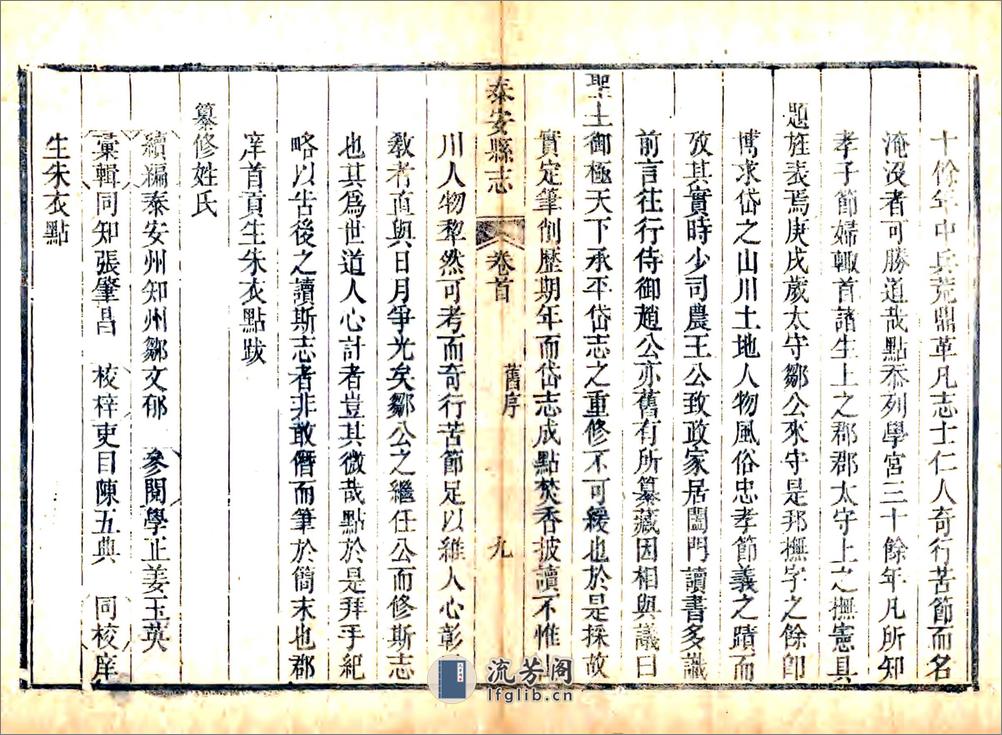 十餘年中兵荒鼎革凡志士仁人奇行苦節而名
淹沒者可勝道哉點忝列學宮三十餘年凡所知
孝子節婦輙首諸生上之郡郡太守上之撫憲具
題旌表焉庚戌歲太守鄒公來守是邦撫字之餘卽
博求岱之山川土地人物風俗忠孝節義之蹟而
攷其實時少司農王公致政家居闔門讀書多識
前言往行侍御趙公亦舊有所纂藏因相與議曰
聖主御極天下承平岱志之重修不可緩也於是採故
實定筆削歷期年而岱志成點焚香披讀不惟山
泰安縣志
卷首
舊序
九
川人物犁然可考而奇行苦節足以維人心彰
教者直與日月爭光矣鄒公之繼任公而修斯志
也其爲世道人心計者豈其微哉點於是拜手紀
略以告後之讀斯志者非敢僭而筆於簡末也郡
庠首貢生朱衣點跋
纂修姓氏
續編泰安州知州鄒文郁 參閱學正姜玉英
彙輯同知張肇昌 校梓吏目陳五典 同校庠
生朱衣點
流芳阁
lfglib.cn